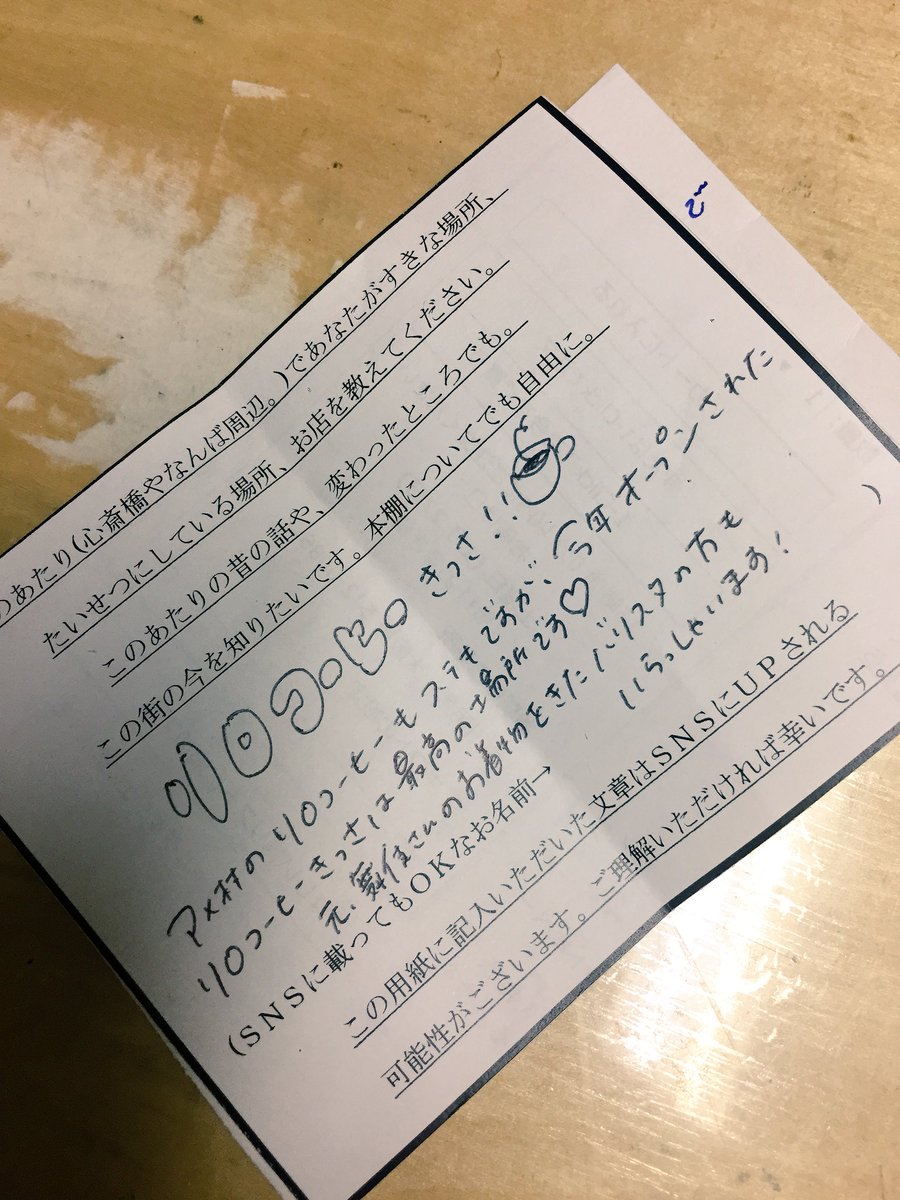 のあたり(心斎橋やなんば周辺。)であなたがすきな場所、
たいせつにしている場所、お店を教えてください。
このあたりの昔の話や、変わったところでも。
この街の今を知りたいです。本棚についてでも自由に。
リロコーヒー きっさ!!
アメ村のリロコーヒーもステキですが、今年オープンされた
リロコーヒーきっさは最高の場所です♡
元、舞妓さんのお着物をきたバリスタの方も
いらっしゃいます!
(SNSに載ってもOKなお名前→ )
この用紙に記入いただいた文章はSNSにUPされる
可能性がございます。ご理解いただければ幸いです。
で